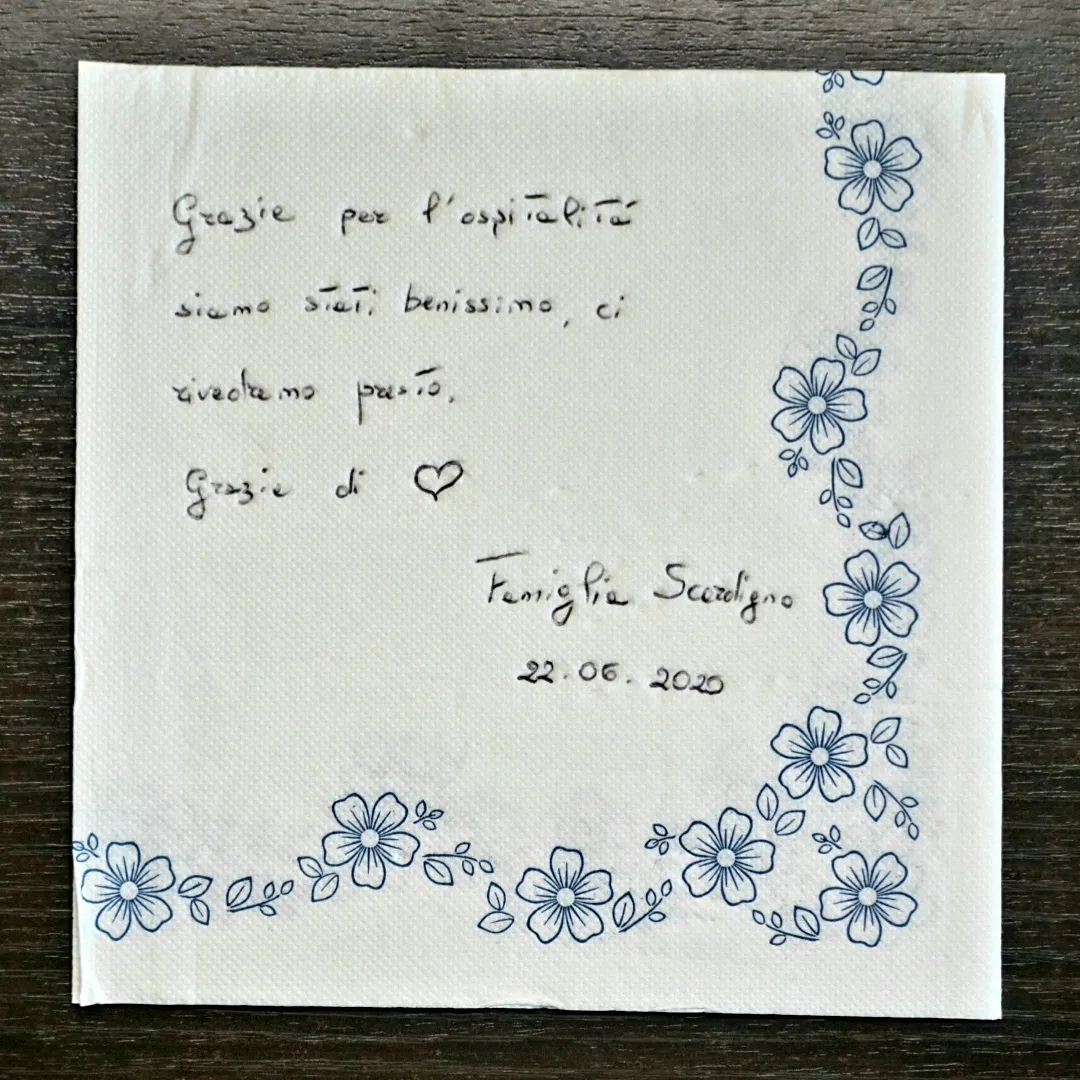 Grazie per l'ospitalità
siamo stati benissimo, ci
rivedremo presto.
Grazie di ♡
Famiglia Scardigno
22.06.2020